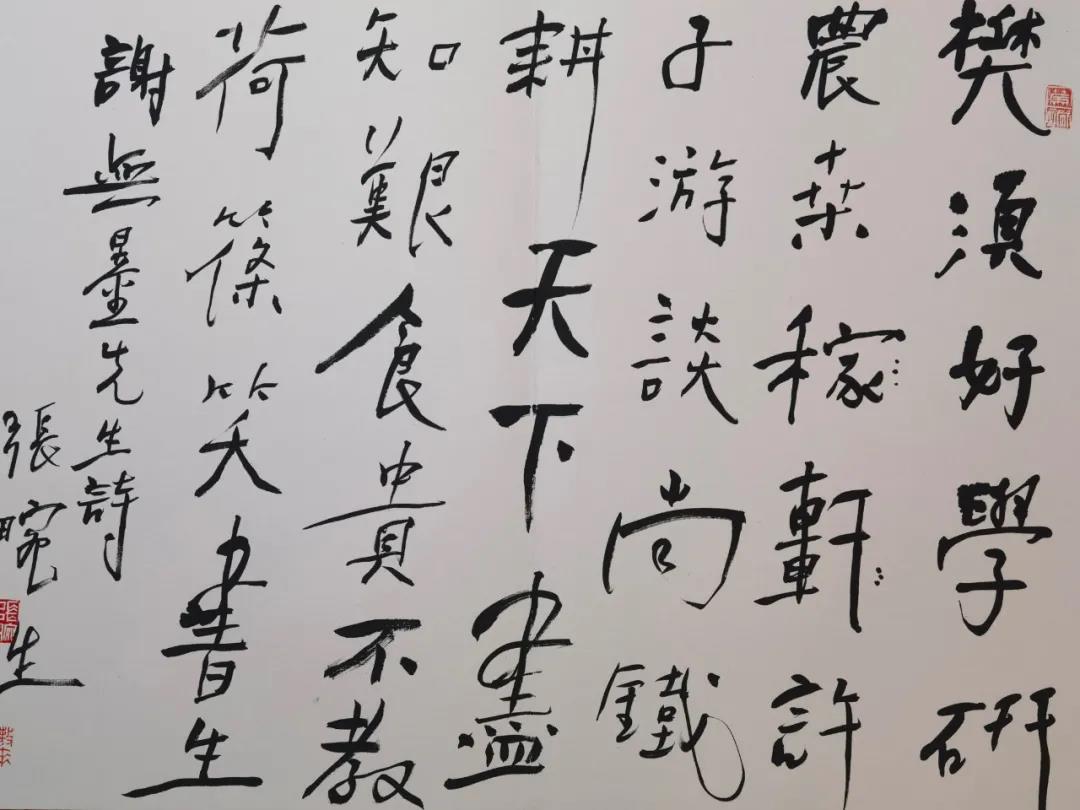 樊須好學研
農桒稼軒許
子游談尚鐵
耕天下盡
知艱食貴不教
荷篠笑書生
謝無量先生詩
張畹生